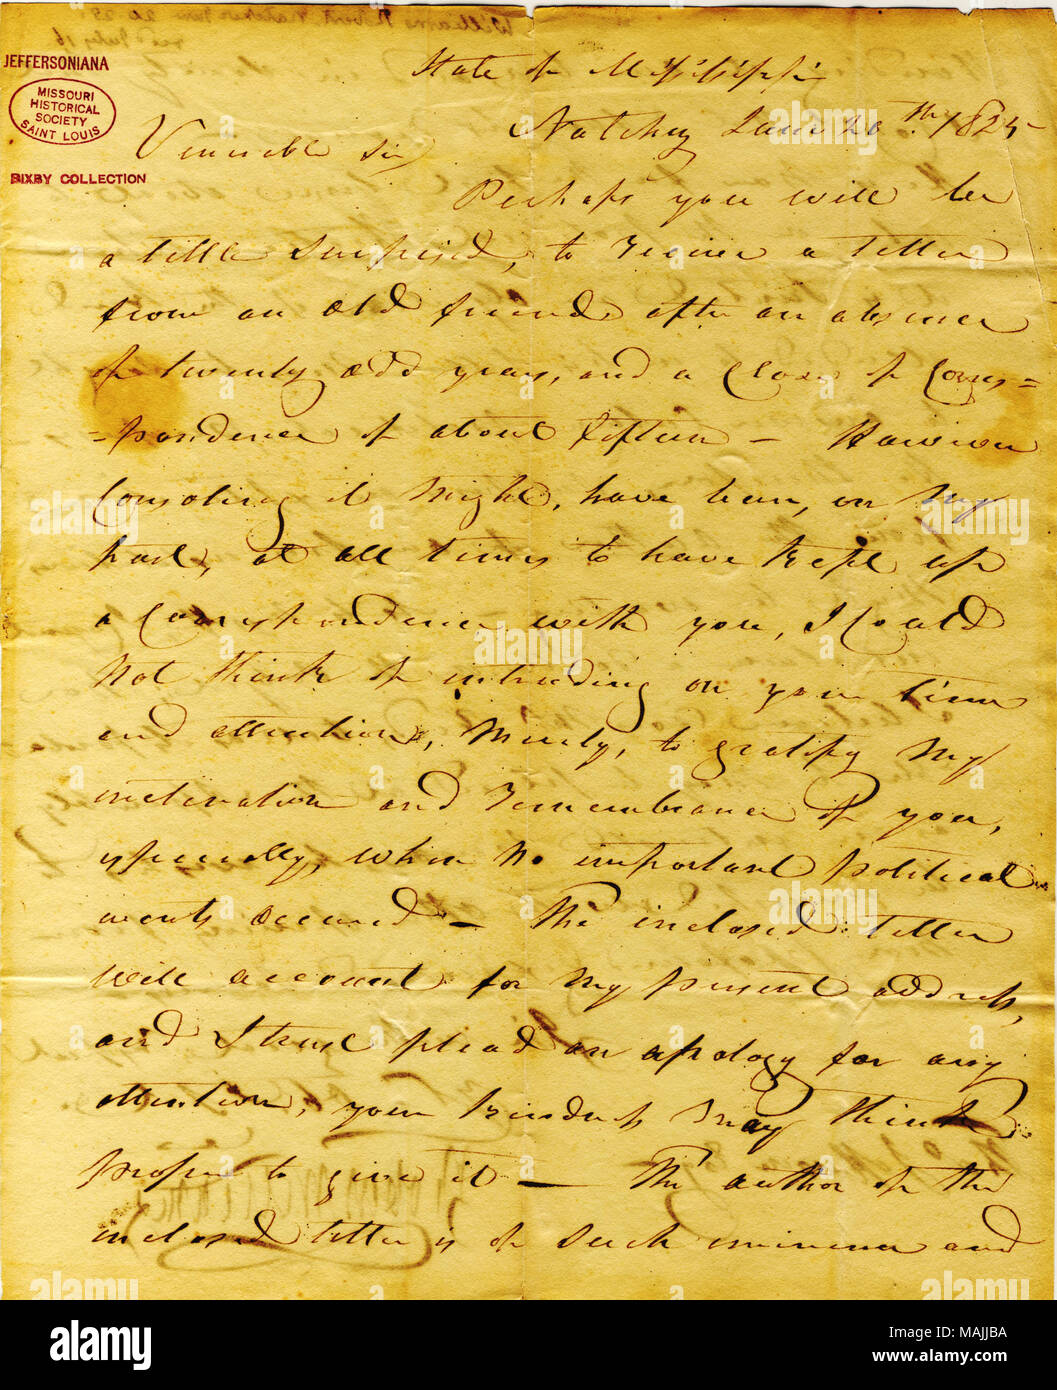 JEFFERSONIANA
MISSOURI
HISTORICAL
SOCIETY
SAINT LOUIS
BIXBY COLLECTION
State of Mississippi
Natchez June 20th. 1825
Venerable Sir
Perhaps you will be
a little surprised, to receive a letter
from an old friend, after an absence
of twenty odd years, and a close of Corres=
=pondence of about fifteen — However
Consoling it might, have been, on my
part, at all times to have kept up
a Correspondence with you, I Could
not think of intruding on your time
and attention, merely, to gratify my
inclination and remembrance of you,
especially, when no important political
events occured — The inclosed letter
will account for my present address,
and I trust plead an apology for any
attention, your kindness may think
proper to give it — The author of the
inclosed letter is of such eminence and
alamy
Image ID: MAJJBA
www.alamy.com